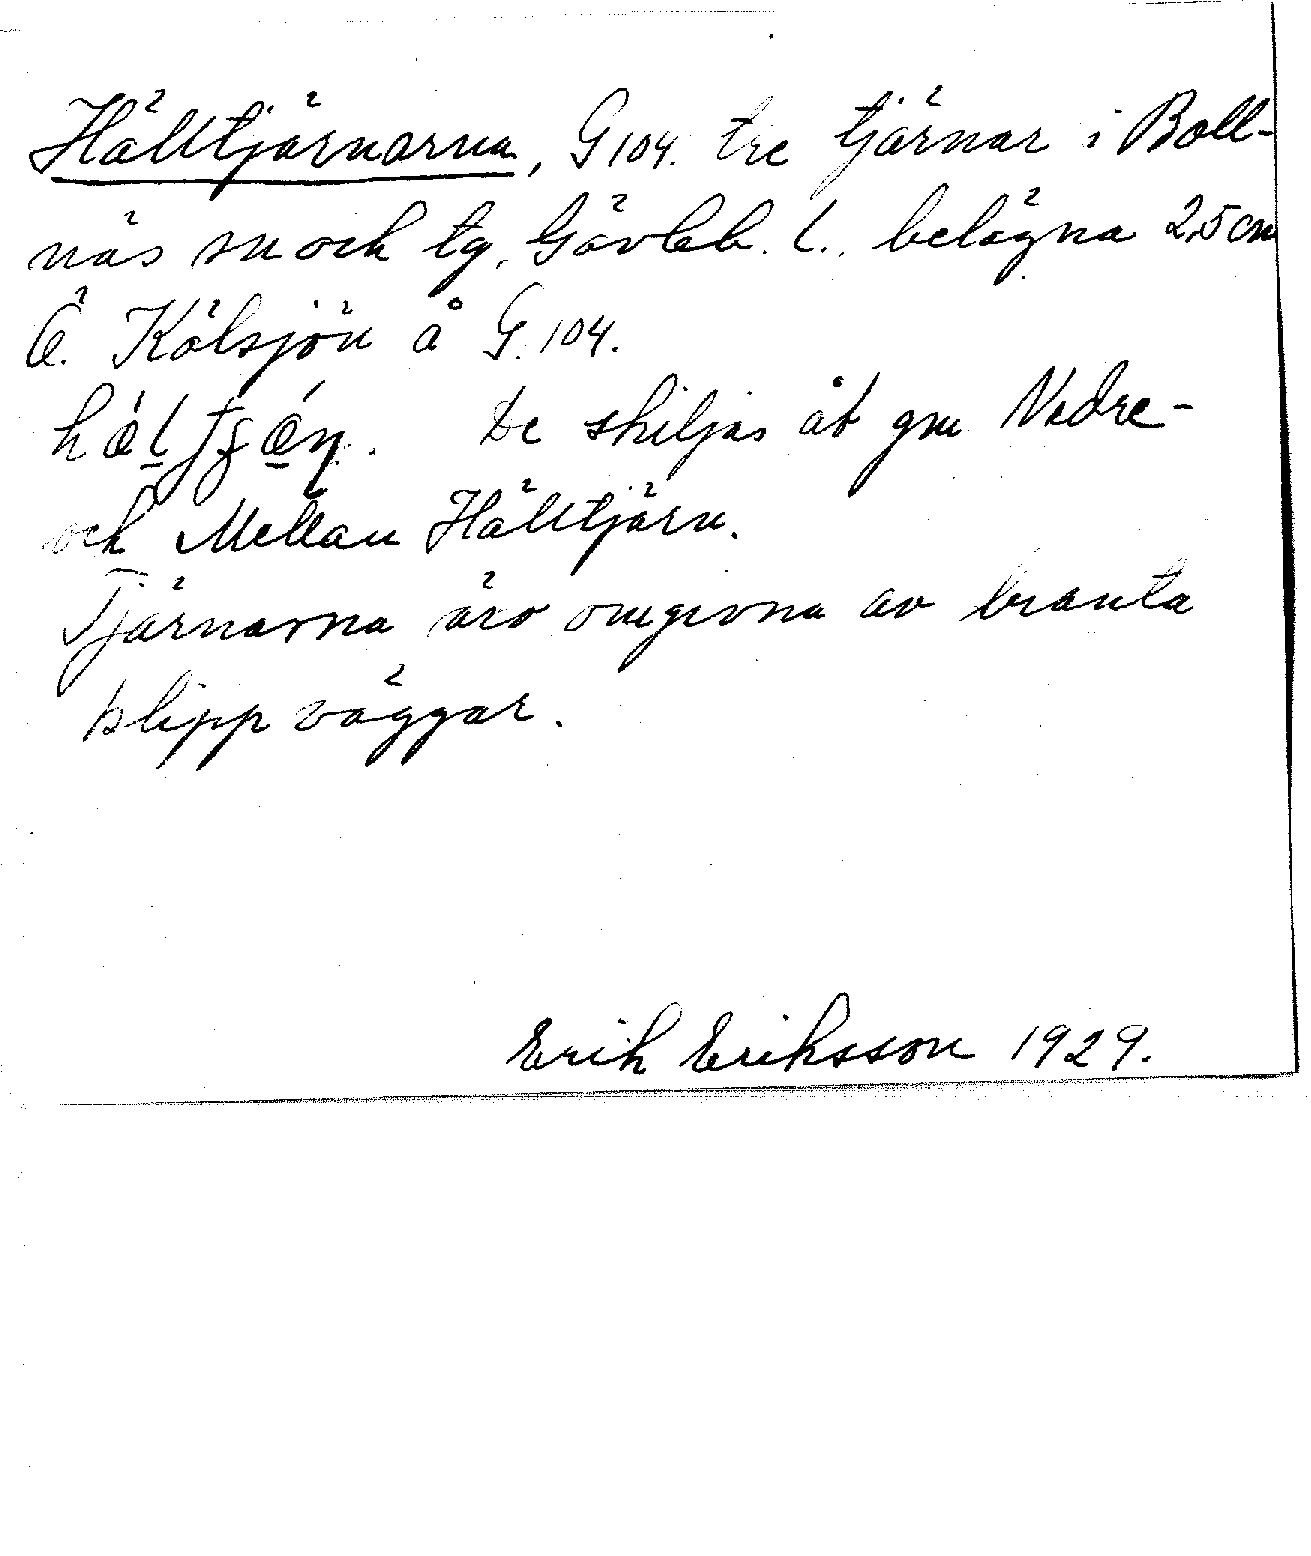 Hälltjärnarna, G 104. tre tjärnar i Boll-
näs sn och tg, Gävleb. l., belägna 2,5 cm
Ö. Kölsjön å G. 104.
De skiljas åt gm Nedre-
och Mellan Hälltjärn.
Tjärnarna äro omgivna av branta
klippväggar.
Erik Eriksson 1929.